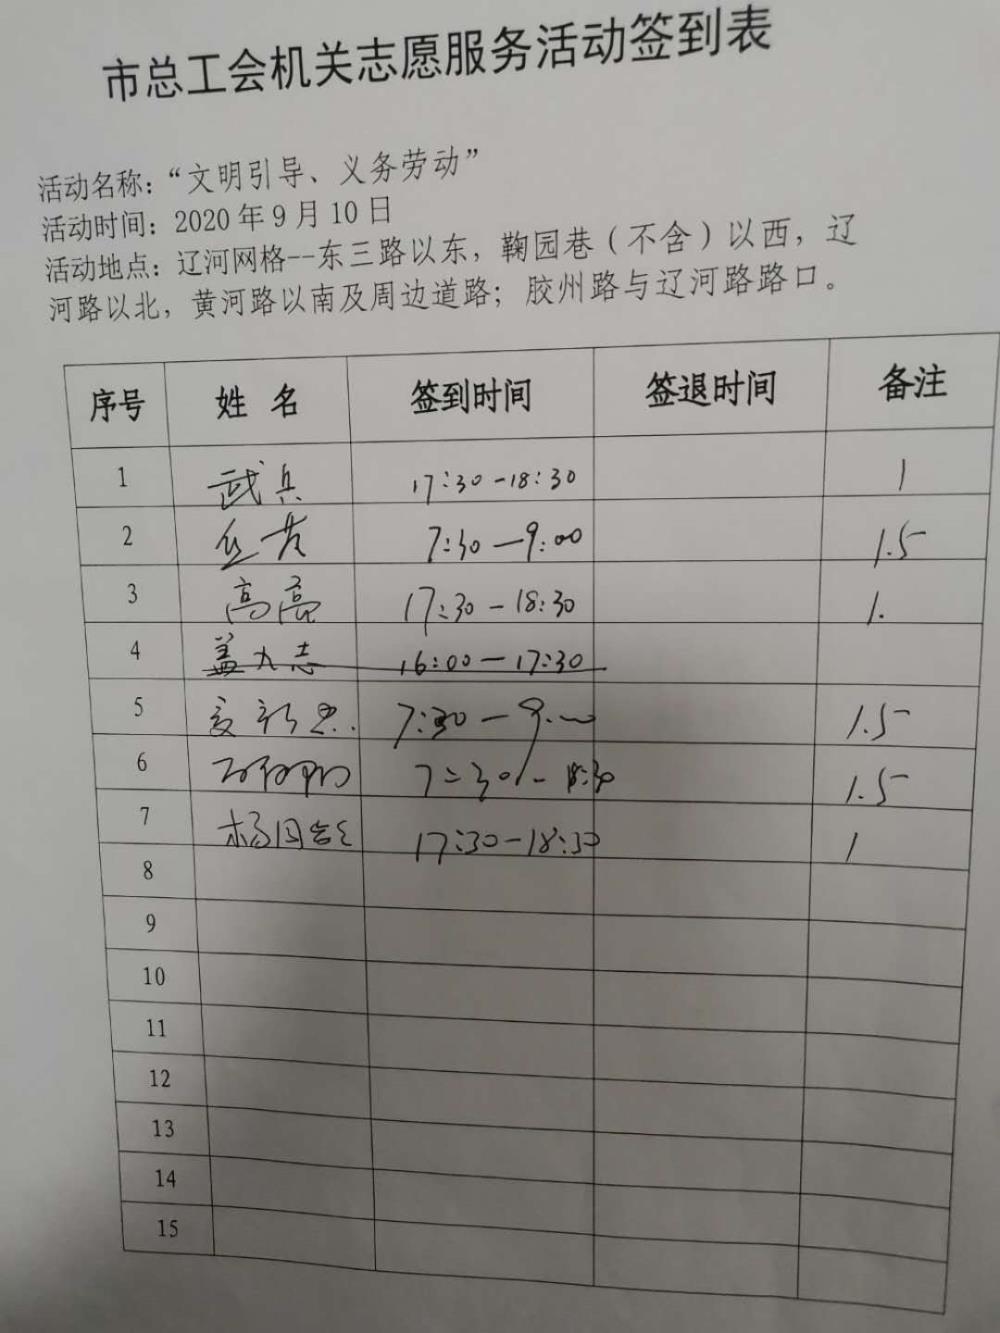 市总工会机关志愿服务活动签到表
活动名称：“文明引导、义务劳动”
活动时间：2020年9月10日
活动地点：辽河网格--东三路以东，鞠园巷（不含）以西，辽
河路以北，黄河路以南及周边道路；胶州路与辽河路路口。
序号 姓名 签到时间 签退时间 备注
1 武兵 17:30-18:30 1
2 7:30-9:00 1.5
3 高亮 17:30-18:30 1.
4 盖九志 16:00-17:30
5 7:30-9:00 1.5
6 7:30- 1.5
7 17:30-18:30 1
8
9
10
11
12
13
14
15